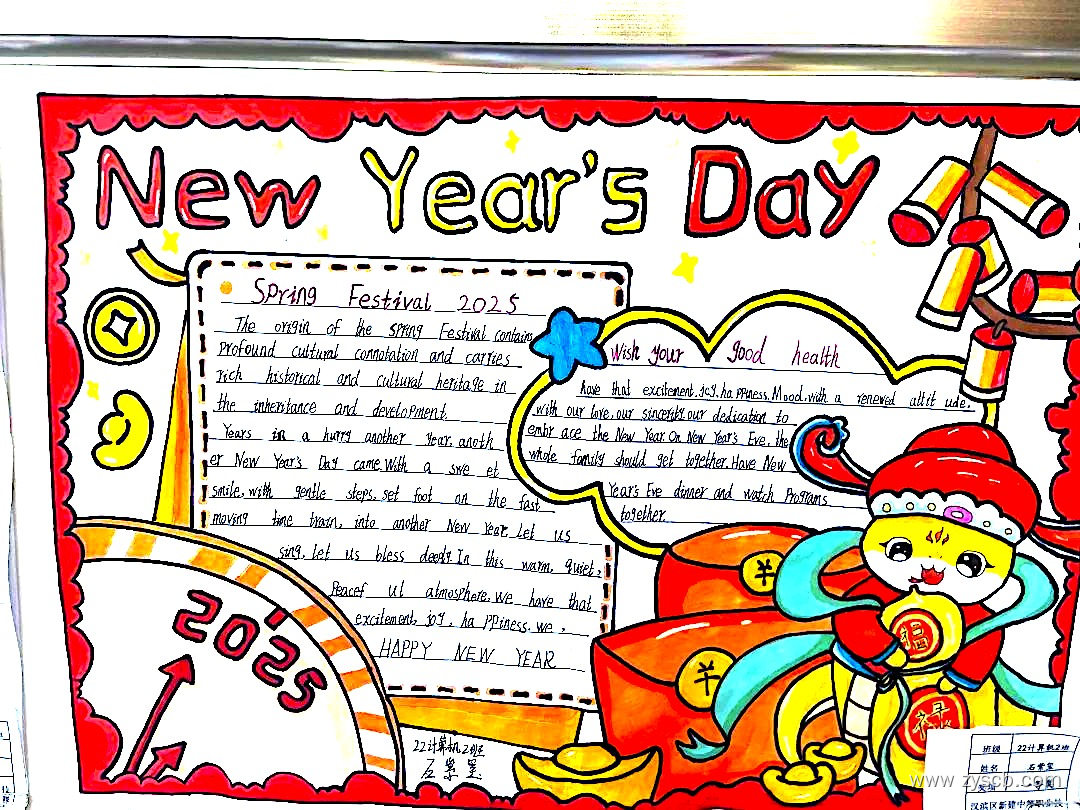 New Year's Day
Spring Festival 2025
The origin of the spring Festival contains
profound cultural connotation and carries
rich historical and cultural heritage in
the inheritance and development.
Years in a hurry another year, anoth
er New Year's Day came. With a swe et
smile, with gentle steps, set foot on the fast
moving time train, into another New Year. Let us
sing, let us bless deeply. In this warm, quiet,
Peacef ul atmosphere, we have that
excitement, joy, ha ppiness. we,
HAPPY NEW YEAR
Wish your good health
have that excitement, joy, ha ppiness. Mood, with a renewed attit ude,
with our love, our sincerity, our dedication to
embr ace the New Year. On New Year's Eve, the
whole family should get together. Have New
Year's Eve dinner and watch Programs
together.
2025
羊
羊
福
禄
22计算机2班
班级 22计算机2班
姓名
www.zyscb.com